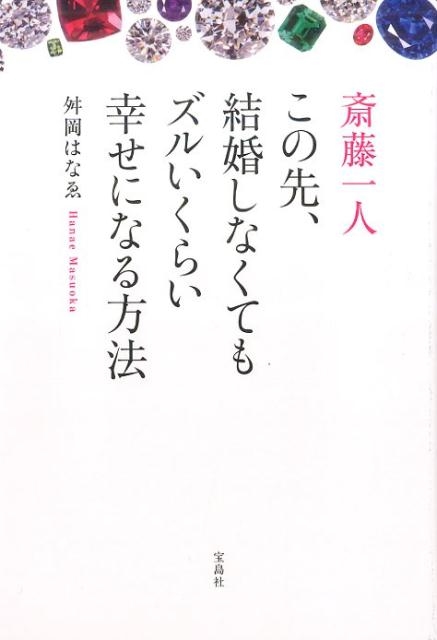 斎藤一人
この先、
結婚しなくても
ズルいくらい
幸せになる方法
舛岡はなゑ
Hanae Masuoka
宝島社